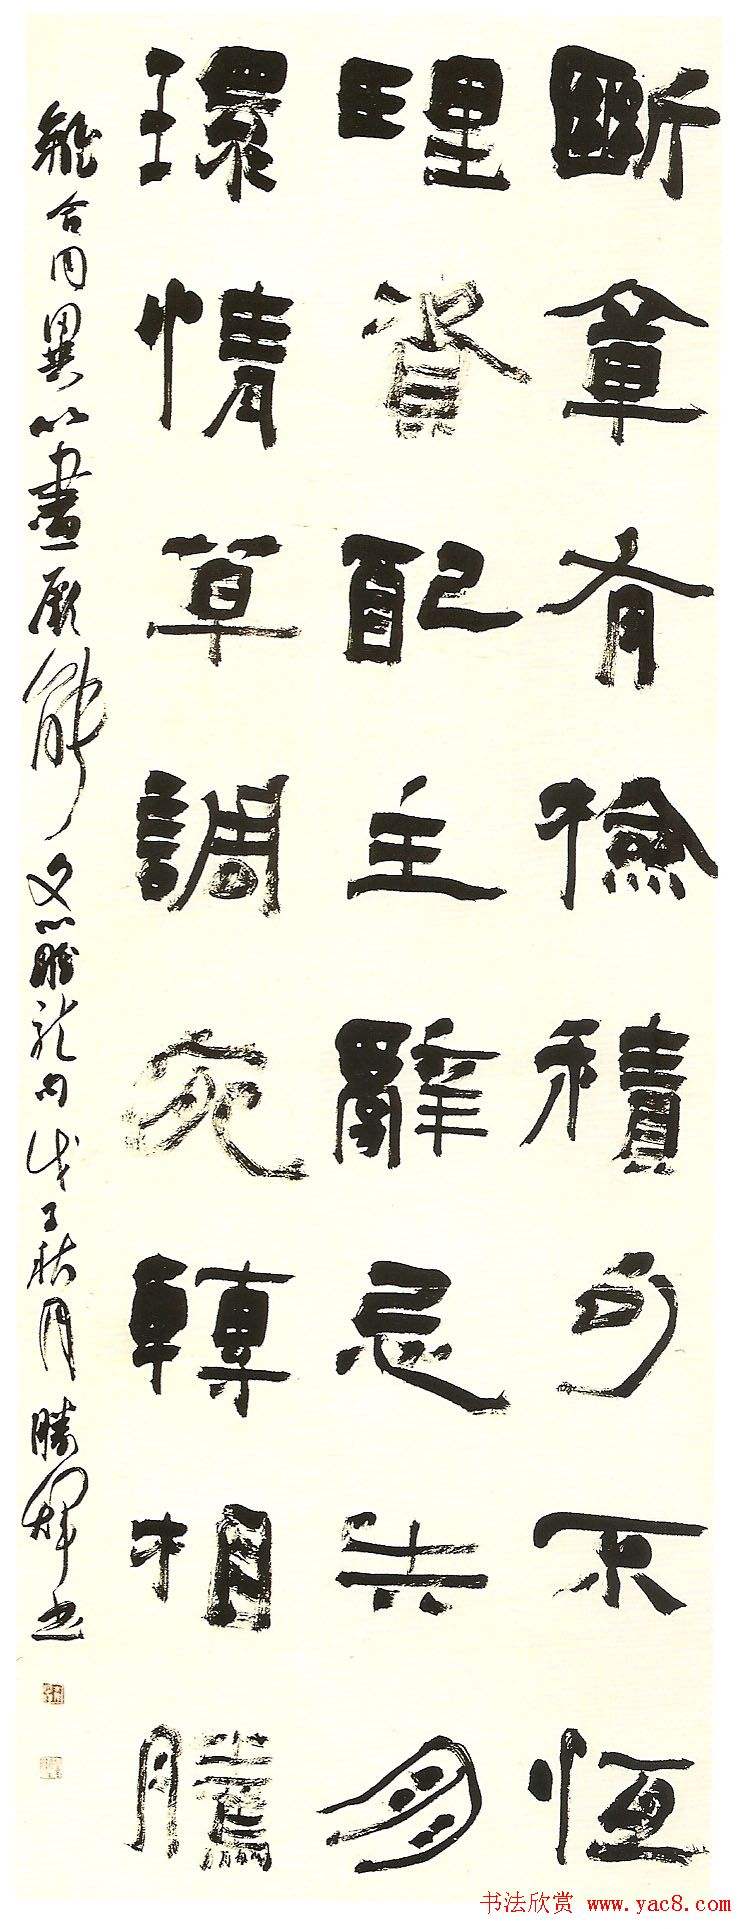 斷章有檢積句不恒
理資配主辭忌失朋
環情草調宛轉相騰
離合同異以盡厥能 文心雕龍句 戊子秋月 勝輝書
书法欣赏 www.yac8.com